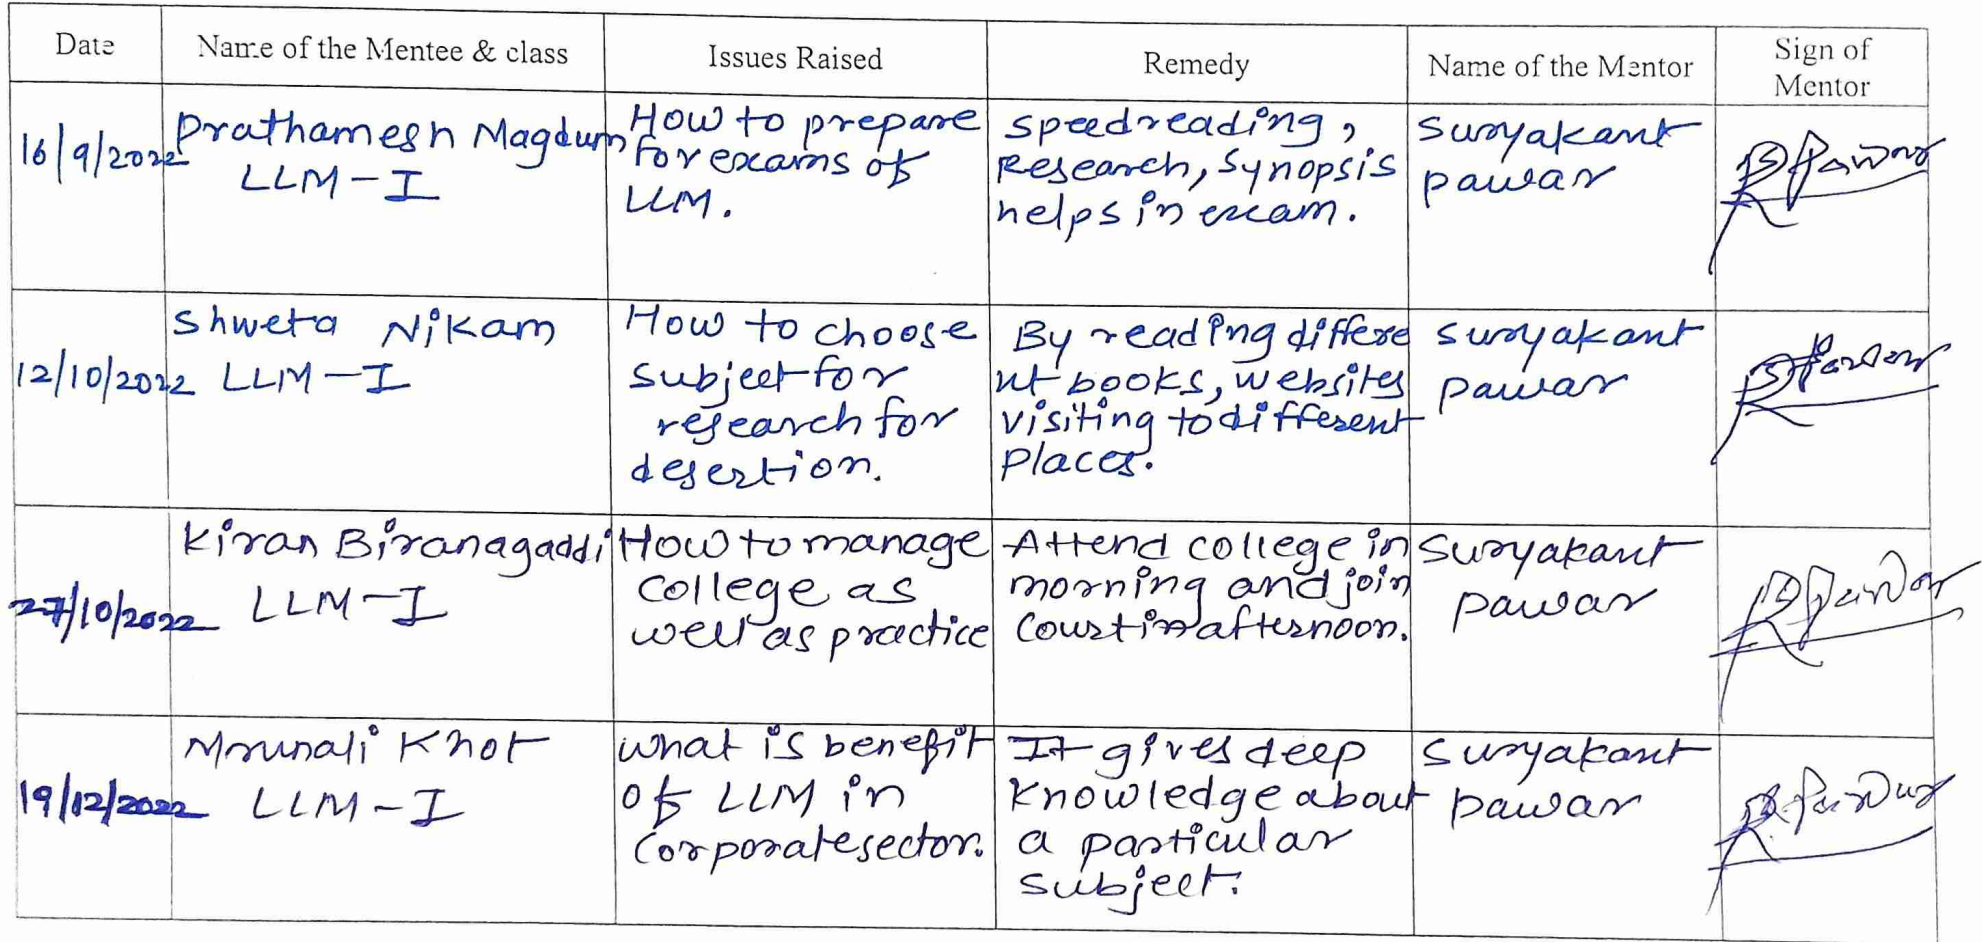 Date
Name of the Mentee & class
Issues Raised
Remedy
Name of the Mentor
Sign of
Mentor
16/9/2022
Prathamesh Magdum
LLM-I
How to prepare
for exams of
LLM.
speedreading,
Research, Synopsis
helps in exam.
Suryakant
pawar
12/10/2022
Shweta Nikam
LLM-I
How to choose
subject for
research for
desertion.
By reading differe
nt books, websites
visiting to different
places.
suryakant
pawar
27/10/2022
Kiran Biranagaddi
LLM-I
How to manage
college as
well as practice
Attend college in
morning and join
Court in afternoon.
Suryakant
pawar
19/12/2022
Mrunali Khot
LLM-I
what is benefit
of LLM in
Corporate sector.
It gives deep
Knowledge about
a particular
subject.
Suryakant
pawar